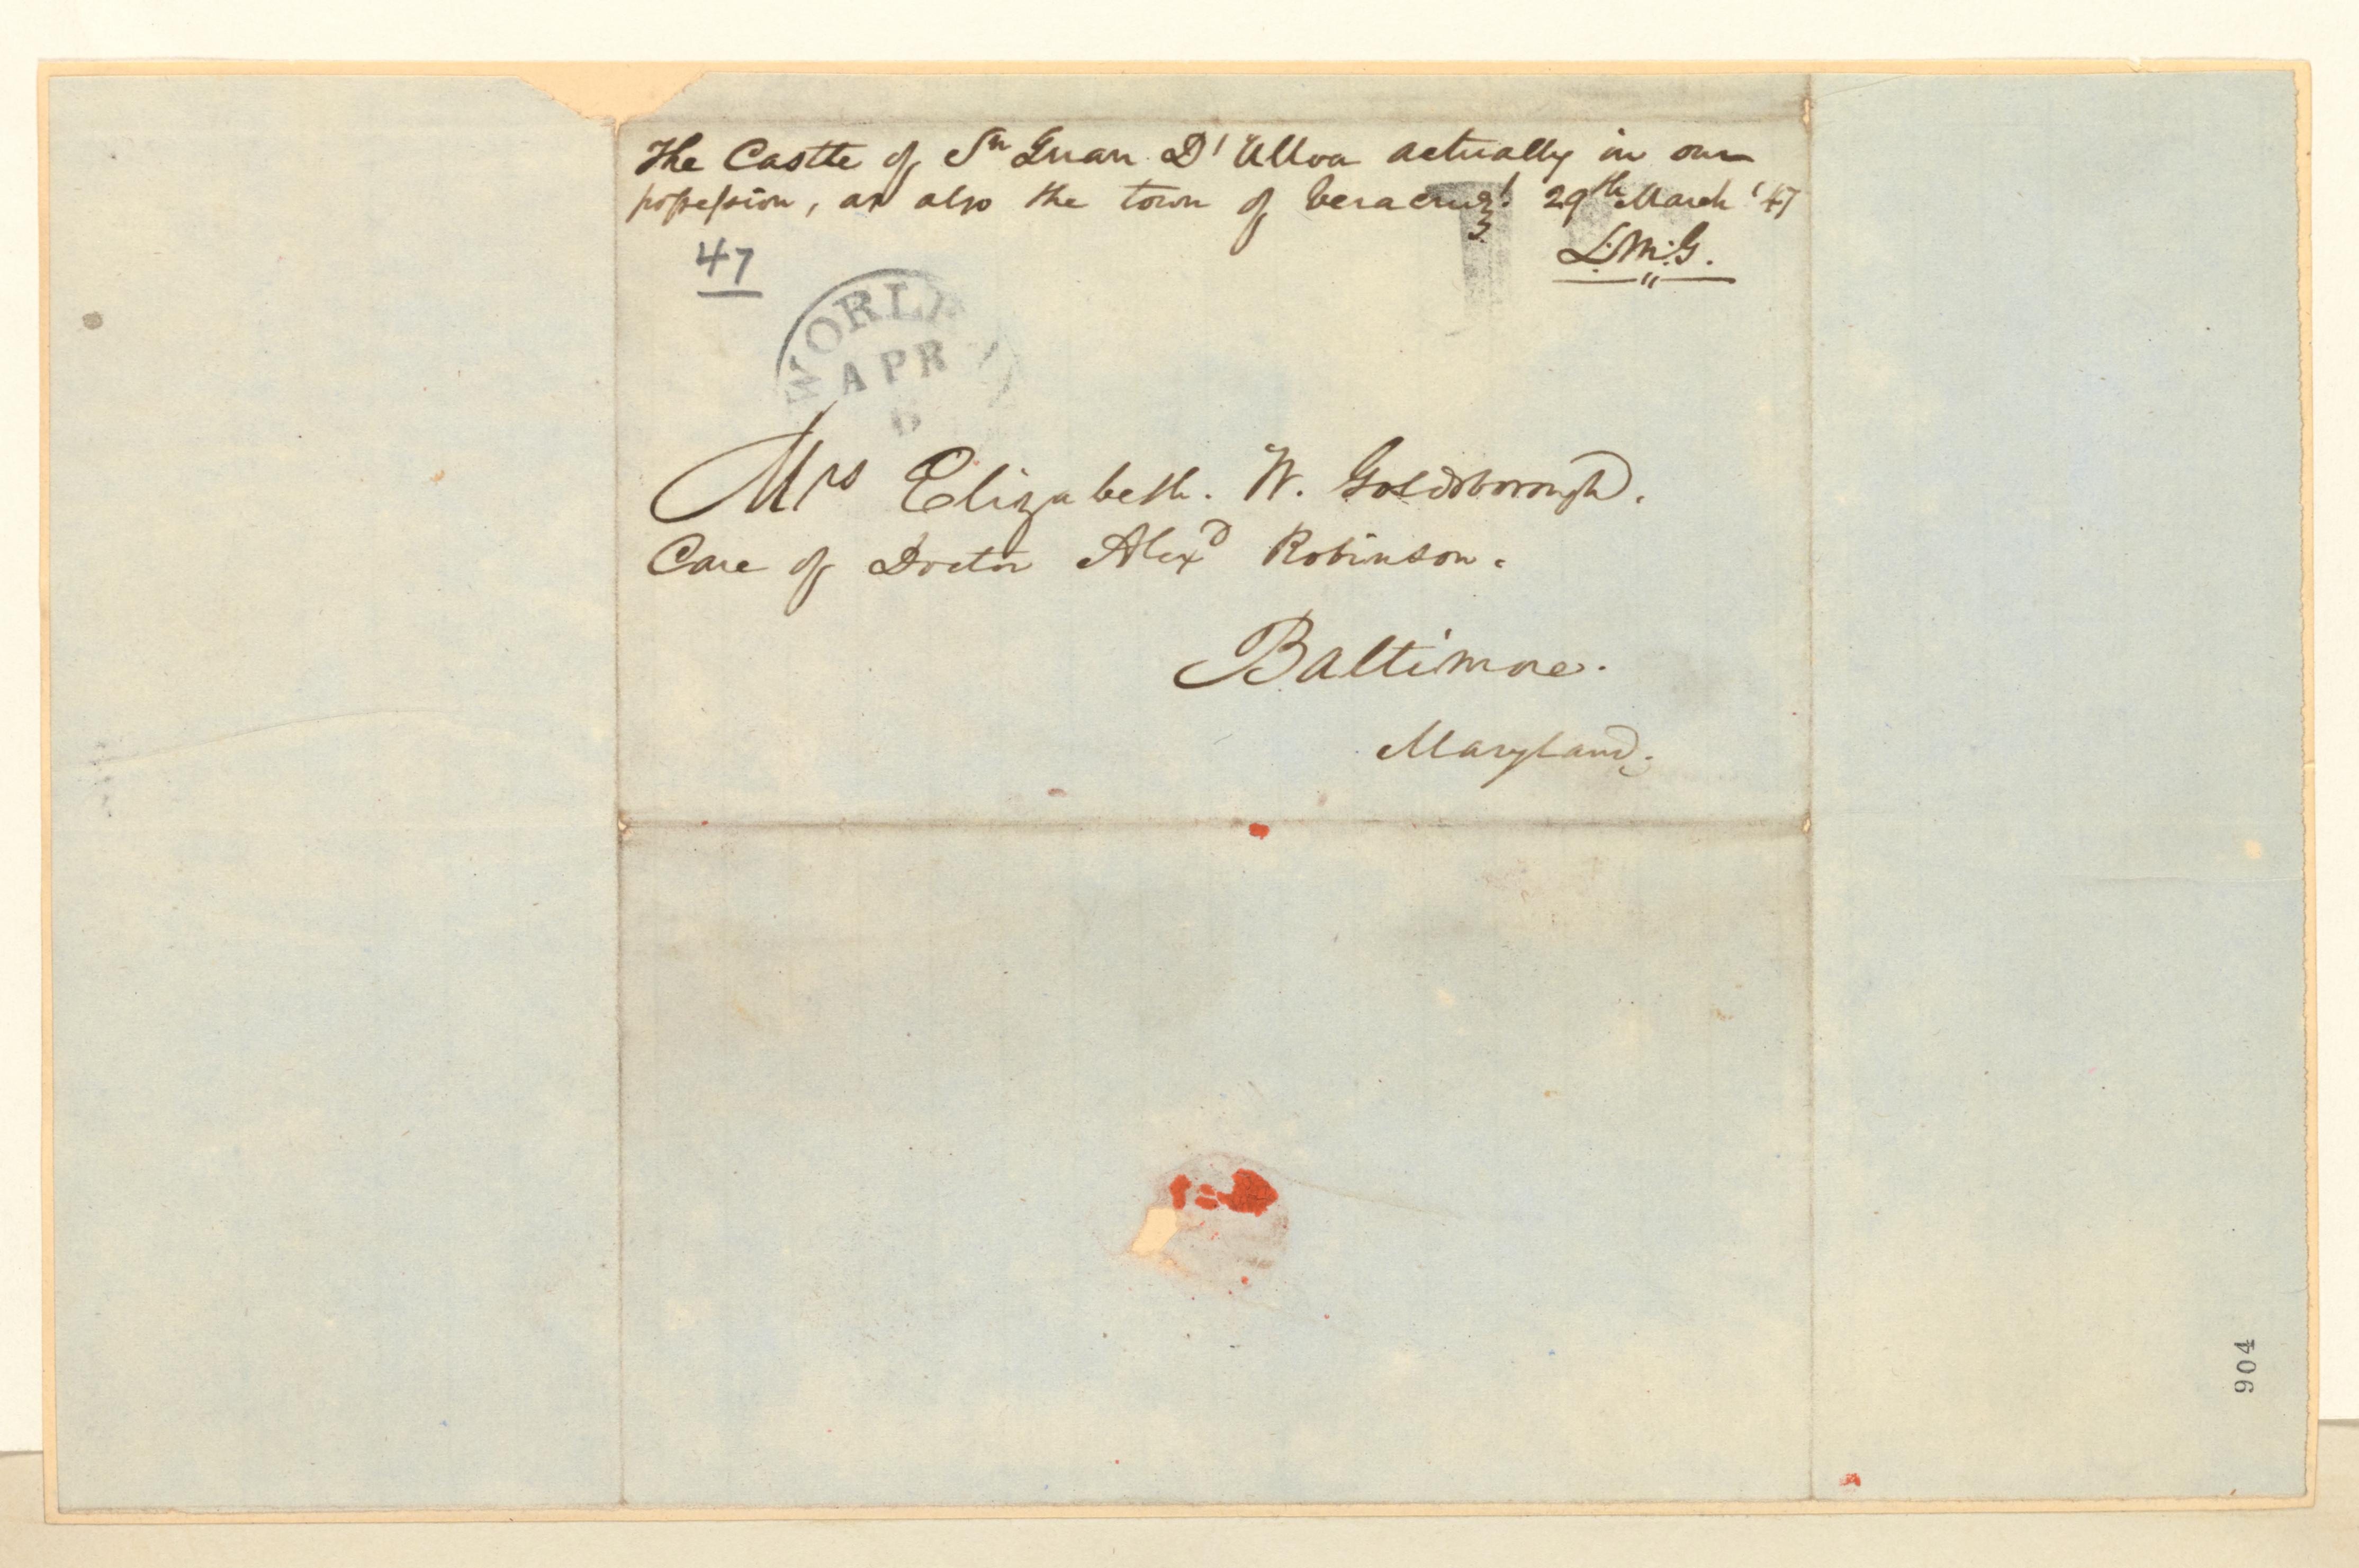 The Castle of Sn Guan D' Ulloa actually in our
possession, as also the town of Veracruz! 29th March '47
L.M.G.
47
WORLE
APR
6
Mrs Elizabeth. W. Goldsborough.
Care of Doctor Alexd Robinson.
Baltimore.
Maryland.
904